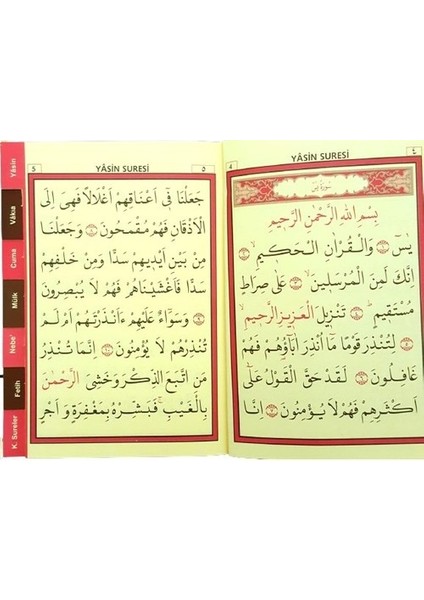 4 YÂSİN SURESİ ٤
سُورَةُ يٰسٓ
بِسْمِ اللّٰهِ الرَّحْمٰنِ الرَّحِيمِ
يٰسٓ ۝١ وَالْقُرْاٰنِ الْحَكِيمِ ۝٢
اِنَّكَ لَمِنَ الْمُرْسَلِينَ ۝٣ عَلٰى صِرَاطٍ
مُسْتَقِيمٍ ۝٤ تَنْزِيلَ الْعَزِيزِ الرَّحِيمِ ۝٥
لِتُنْذِرَ قَوْمًا مَٓا اُنْذِرَ اٰبَٓاؤُهُمْ فَهُمْ
غَافِلُونَ ۝٦ لَقَدْ حَقَّ الْقَوْلُ عَلٰٓى
اَكْثَرِهِمْ فَهُمْ لَا يُؤْمِنُونَ ۝٧ اِنَّا
5 YÂSİN SURESİ ٥
جَعَلْنَا فِٓى اَعْنَاقِهِمْ اَغْلَالًا فَهِىَ اِلَى
الْاَذْقَانِ فَهُمْ مُقْمَحُونَ ۝٨ وَجَعَلْنَا
مِنْ بَيْنِ اَيْدِيهِمْ سَدًّا وَمِنْ خَلْفِهِمْ
سَدًّا فَاَغْشَيْنَاهُمْ فَهُمْ لَا يُبْصِرُونَ
۝٩ وَسَوَٓاءٌ عَلَيْهِمْ ءَاَنْذَرْتَهُمْ اَمْ لَمْ
تُنْذِرْهُمْ لَا يُؤْمِنُونَ ۝١٠ اِنَّمَا تُنْذِرُ
مَنِ اتَّبَعَ الذِّكْرَ وَخَشِىَ الرَّحْمٰنَ
بِالْغَيْبِ فَبَشِّرْهُ بِمَغْفِرَةٍ وَ اَجْرٍ
Yâsin
Vâkıa
Cuma
Mülk
Nebe'
Fetih
K. Sureler